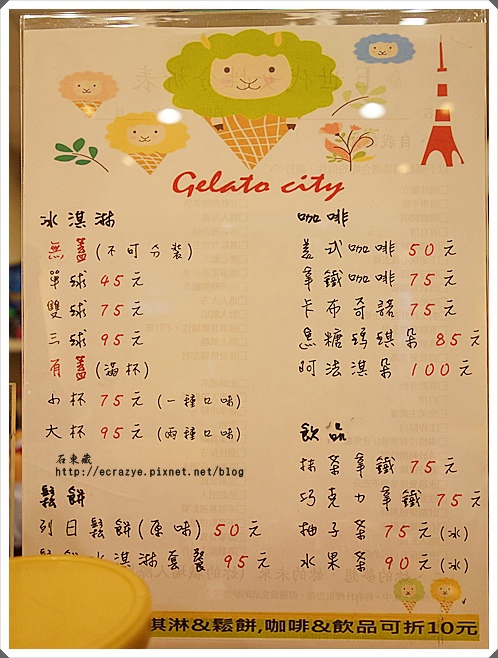 Gelato city
冰淇淋
無蓋(不可分裝)
單球 45元
雙球 75元
三球 95元
有蓋(滿杯)
小杯 75元 (一種口味)
大杯 95元 (兩種口味)
石東藏
http://ecrazye.pixnet.net/blog
鬆餅
列日鬆餅(原味) 50元
冰淇淋套餐 95元
咖啡
美式咖啡 50元
拿鐵咖啡 75元
卡布奇諾 75元
焦糖瑪琪朵 85元
阿法淇朵 100元
飲品
抹茶拿鐵 75元
巧克力拿鐵 75元
柚子茶 75元(冰)
水果茶 90元(冰)
淇淋&鬆餅,咖啡&飲品可折10元